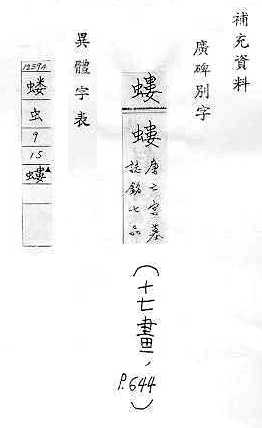 補充資料
廣碑別字
螻
螻
唐亡宮墓
誌銘七品
(十七畫，
P.644)
異體字表
1259A
蝼
虫
9
15
螻▲